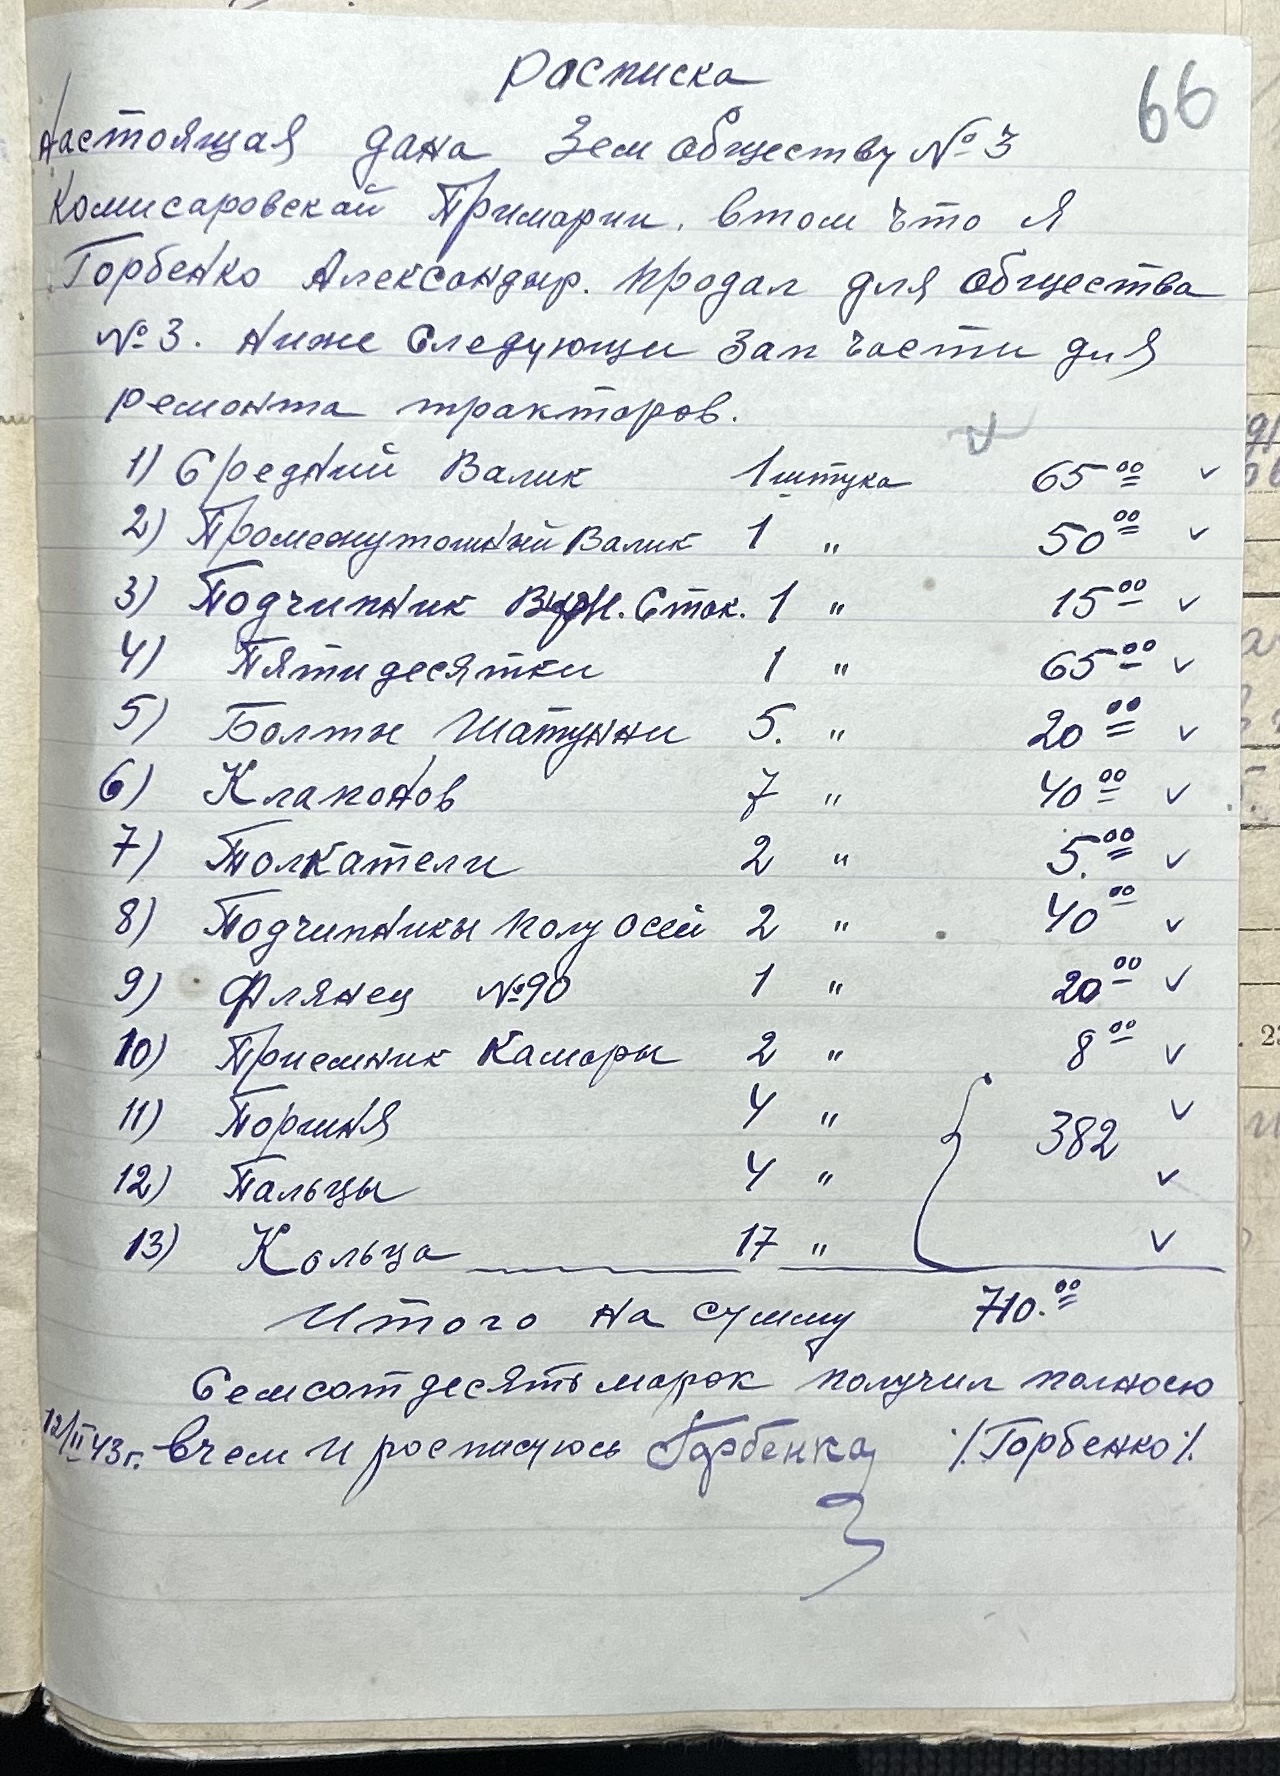 Росписка
66
Настоящая дана Зем обществу № 3
Комисаровской Примарии. втом что я
Горбенко Александыр. продал для общества
№ 3. Ниже Следующи Зап части для
ремонта тракторов.
1) Средний Валик 1 штука 65 00 ✓
2) Промежуточный Валик 1 " 50 00 ✓
3) Подчипник Сток. 1 " 15 00 ✓
4) Пятидесятки 1 " 65 00 ✓
5) Болты Шатунни 5. " 20 00 ✓
6) Клапонов 7 " 40 00 ✓
7) Толкатели 2 " 5. 00 ✓
8) Подчипники полу осей 2 " 40 00 ✓
9) Флянец №90 1 " 20 00 ✓
10) Приемник Каморы 2 " 8 00 ✓
11) Поршня 4 " 382 ✓
12) Пальцы 4 " ✓
13) Кольца 17 " ✓
Итого на сумму 710. 00
Семсот десять марок получил полносю
12/II 43 г. вчем и росписуюсь Горбенко /.Горбенко/.